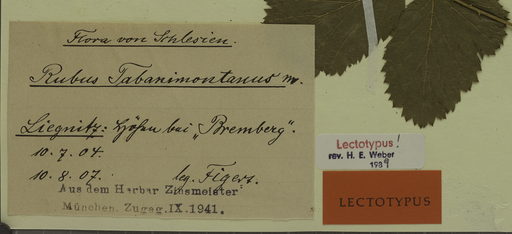 Flora von Schlesien.
Rubus Tabanimontanus m.
Liegnitz: Höhen bei „Bremberg".
10. 7. 04.
10. 8. 07. leg. Figert.
Aus dem Herbar Zinsmeister
München. Zugag. IX. 1941.
Lectotypus!
rev. H. E. Weber
1989
LECTOTYPUS